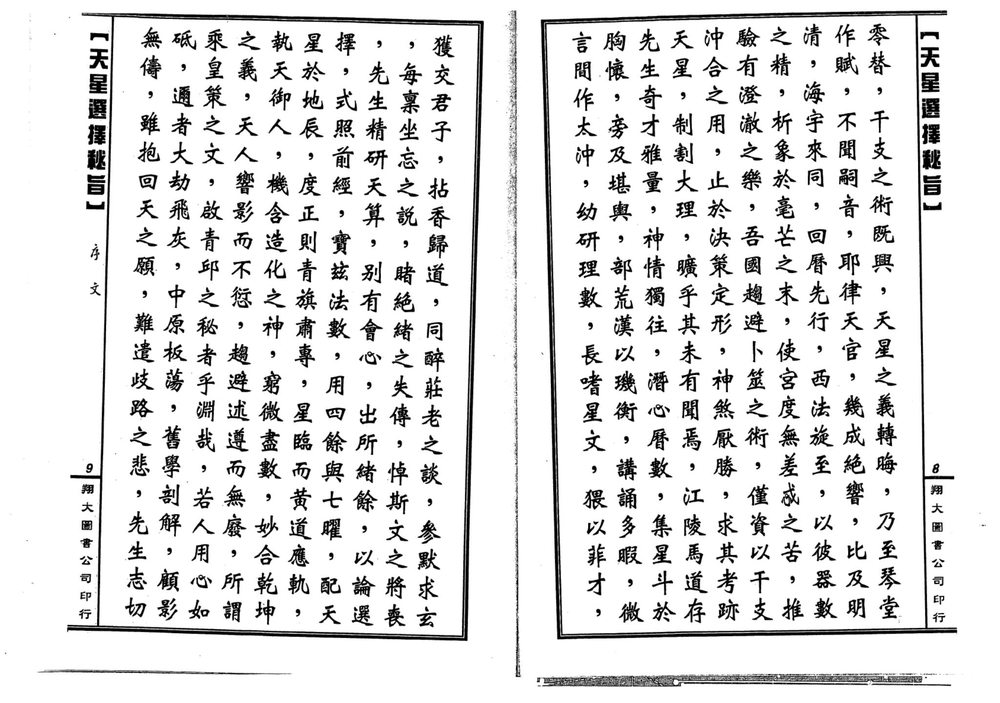 【天星選擇秘旨】
8
翔大圖書公司印行
零替，干支之術既興，天星之義轉晦，乃至琴堂
作賦，不聞嗣音，耶律天官，幾成絕響，比及明
清，海宇來同，回曆先行，西法旋至，以彼器數
之精，析象於毫芒之末，使宮度無差忒之苦，推
驗有澄澈之樂，吾國趨避卜筮之術，僅資以干支
沖合之用，止於決策定形，神煞厭勝，求其考跡
天星，制割大理，曠乎其未有聞焉，江陵馬道存
先生奇才雅量，神情獨往，潛心曆數，集星斗於
胸懷，旁及堪輿，部荒漢以璣衡，講誦多暇，微
言間作太沖，幼研理數，長嗜星文，猥以菲才，
獲交君子，拈香歸道，同醉莊老之談，參默求玄
，每稟坐忘之說，睹絕緒之失傳，悼斯文之將喪
，先生精研天算，別有會心，出所緒餘，以論選
擇，式照前經，寶茲法數，用四餘與七曜，配天
星於地辰，度正則青旗肅專，星臨而黃道應軌，
執天御人，機含造化之神，窮微盡數，妙合乾坤
之義，天人響影而不愆，趨避述遵而無廢，所謂
乘皇策之文，啟青邱之秘者乎淵哉，若人用心如
砥，邇者大劫飛灰，中原板蕩，舊學剖解，顧影
無儔，雖抱回天之願，難遣歧路之悲，先生志切
【天星選擇秘旨】
序文
9
翔大圖書公司印行